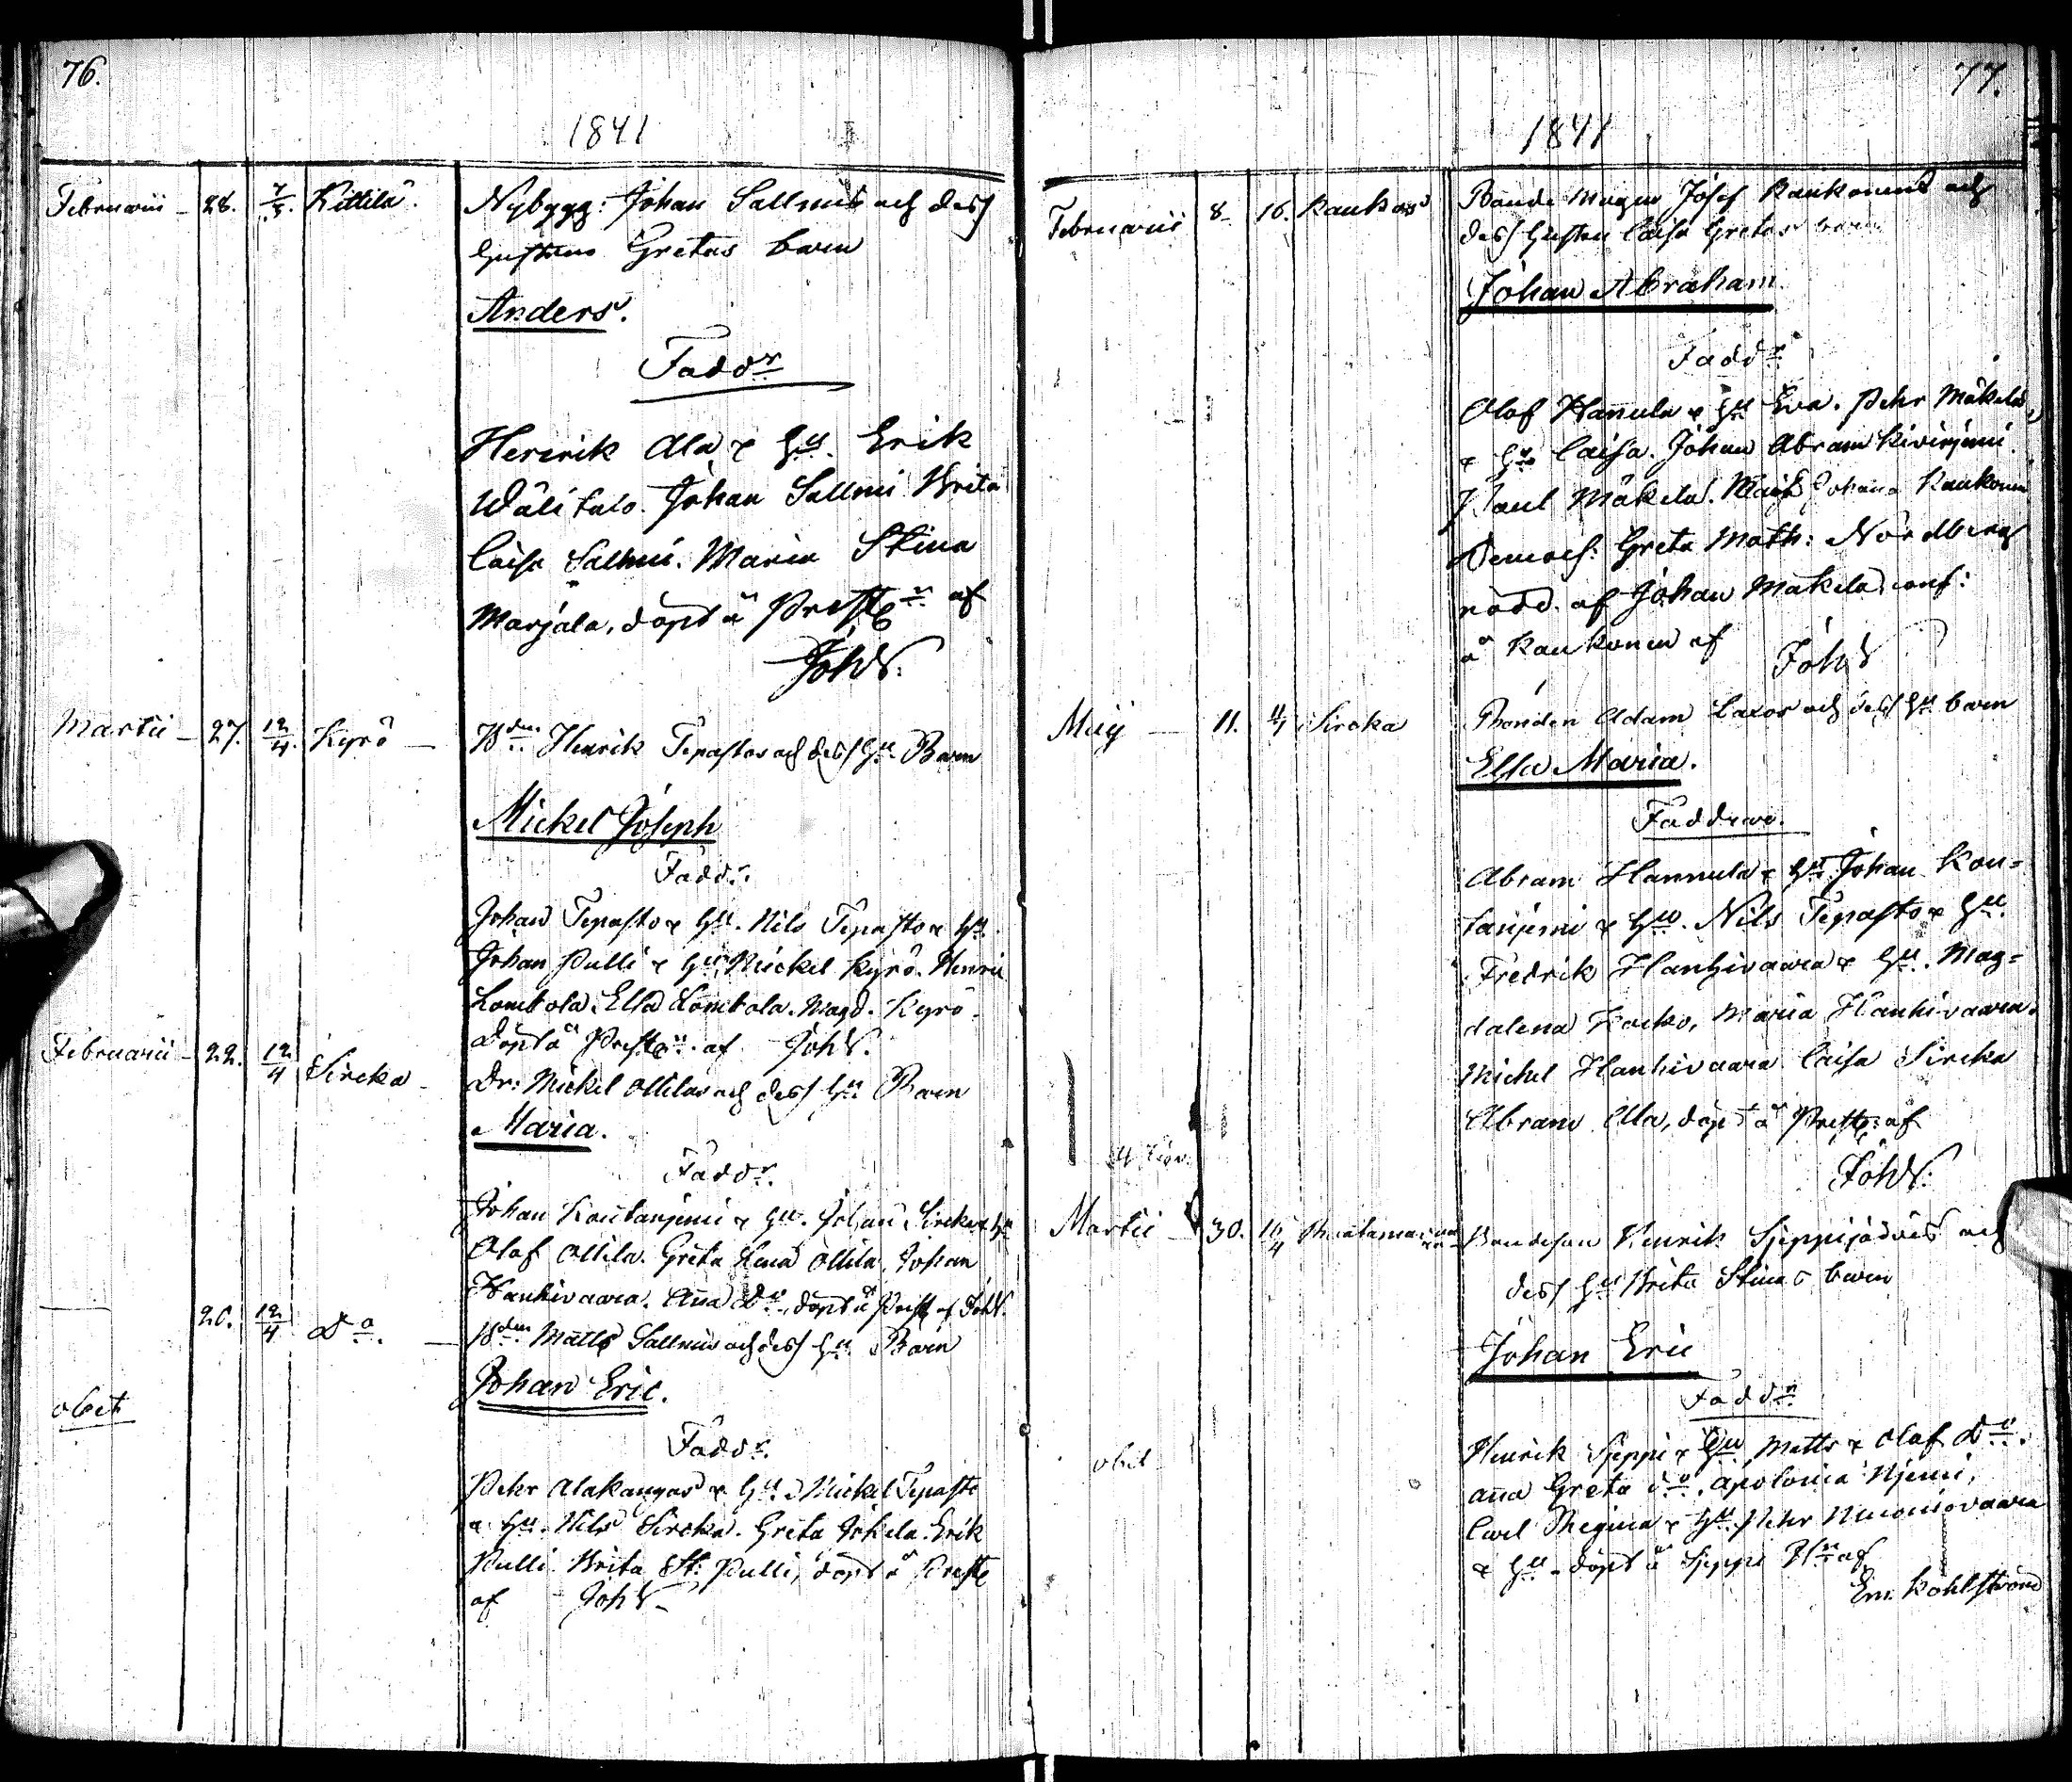 76.
1841
Februarii - 28. 7/3. Kittilä. Nybygg: Johan Sallmis och dess
hustrus Gretas barn
Anders.
Faddr
Henrik Ala & hu. Erik
Wälitalo. Johan Sallmi Brita
Caisa Sallmi. Maria Stina
Marjala, döpt å Prestg af
JohW.
Martii - 27. 12/4. Kyrö - Bdn Henrik Tepastos och dess hu Barn
Mickel Joseph
Faddr.
Johan Tepasto & hu. Nils Tepasto & hu.
Johan Pulli & hu, Mickel Kyrö. Henric
Lombola. Ella Lombola. Magd. Kyrö.
döpt å Prestg af JohW.
Februarii - 22. 12/4 Sircka - Dr: Mickel Ollilas och dess hu Barn
Maria.
Faddr.
Johan Koutaniemi & hu. Johan Sircka & hu
Olof Ollila. Greta Lena Ollila, Johan
Hanhivaara. Anna Do, döpt å Prestg af JohW.
20. 12/4 Do. - Bdn Matts Sallmis och dess hu Barn
Johan Eric.
obiit
Faddr.
Pehr Alakangas & hu. Mickel Tepasto
& hu. Nils Sircka. Greta Jokela. Erik
Pulli Brita St: Pulli, döpt å Prestg
af JohW.
77.
1841
Februarii 8. 16. Kaukos Bonde Mågen Josef Kaukonens och
dess hustru Caisa Gretas barn
Johan Abraham.
Faddr
Olof Hannula & hu Eva. Pehr Mäkelä
& hu Caisa. Johan Abram
Paul Mäkelä. Johanna Kaukonen
Greta Math: Nordberg
nöd. af Johan Mäkelä conf:
å Kaukonen af JohW
Maij - 11. Sircka Bonden Adam Laxos och dess hu barn
Ella Maria.
Faddrar.
Abram Hannula & hu Johan Kou=
taniemi & hu. Nils Tepasto & hu.
Fredrik Hanhivaara & hu. Mag=
dalena Maria Hanhivaara.
Michel Hanhivaara. Caisa Sircka
Abram Ala, döpt å Prestg: af
JohW.
Martii 30. 16/4 Bondeson Henrik Sjeppijärvis och
dess hu Brita Stinas barn
Johan Eric
Faddr
obiit
Henrik Sjeppi & hu Matts & Olof Do.
Anna Greta do. Apolonia Njemi,
Carl Regina & hu Pehr Muoniovaara
& hu - döpt å Sjeppi af
Em. Kohlström